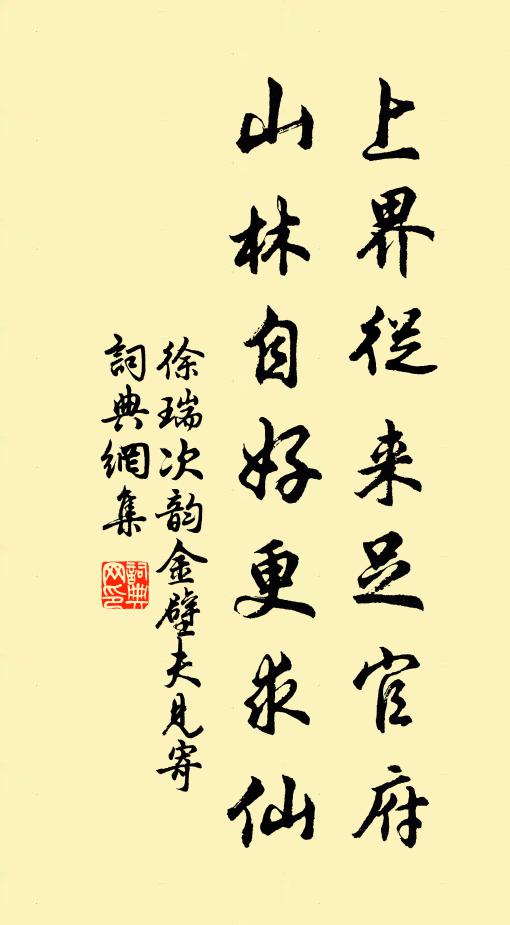 上界從来足官府
山林自好更求仙
徐瑞次韵金壁夫見寄
詞典網集
詞典网印